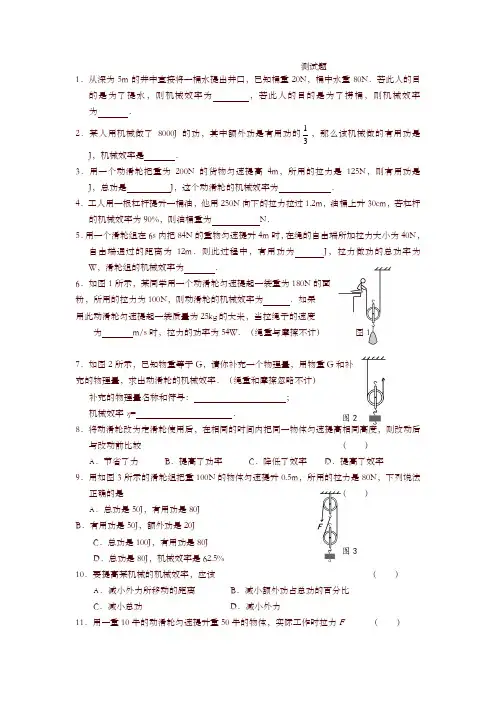 测试题
1．从深为 5m 的井中直接将一桶水提出井口，已知桶重 20N，桶中水重 80N．若此人的目
的是为了提水，则机械效率为　　，若此人的目的是为了捞桶，则机械效率
为　　．
2．某人用机械做了 8000J 的功，其中额外功是有用功的1/3，那么该机械做的有用功是
J，机械效率是　　．
3．用一个动滑轮把重为 200N 的货物匀速提高 4m，所用的拉力是 125N，则有用功是
J，总功是　　J，这个动滑轮的机械效率为　　．
4．工人用一根杠杆提升一桶油，他用 250N 向下的拉力拉过 1.2m，油桶上升 30cm，若杠杆
的机械效率为 90%，则油桶重为　　N．
5．用一个滑轮组在 6s 内把 84N 的重物匀速提升 4m 时，在绳的自由端所加拉力大小为 40N，
自由端通过的距离为 12m．则此过程中，有用功为　　J，拉力做功的总功率为
W，滑轮组的机械效率为　　．
6．如图 1 所示，某同学用一个动滑轮匀速提起一袋重为 180N 的面
粉，所用的拉力为 100N，则动滑轮的机械效率为　　．如果
用此动滑轮匀速提起一袋质量为 25kg 的大米，当拉绳子的速度
为　　m/s 时，拉力的功率为 54W．（绳重与摩擦不计）
图 1
7．如图 2 所示，已知物重等于 G，请你补充一个物理量，用物重 G 和补
充的物理量，求出动滑轮的机械效率．（绳重和摩擦忽略不计）
补充的物理量名称和符号：　　；
机械效率 η=　　．
图 2
8．将动滑轮改为定滑轮使用后，在相同的时间内把同一物体匀速提高相同高度，则改动后
与改动前比较（　）
A．节省了力　B．提高了功率　C．降低了效率　D．提高了效率
9．用如图 3 所示的滑轮组把重 100N 的物体匀速提升 0.5m，所用的拉力是 80N，下列说法
正确的是（　）
A．总功是 50J，有用功是 80J
B．有用功是 50J，额外功是 20J
C．总功是 100J，有用功是 80J
D．总功是 80J，机械效率是 62.5%
F
图 3
10．要提高某机械的机械效率，应该（　）
A．减小外力所移动的距离　B．减小额外功占总功的百分比
C．减小总功　D．减小外力
11．用一重 10 牛的动滑轮匀速提升重 50 牛的物体，实际工作时拉力 F（　）